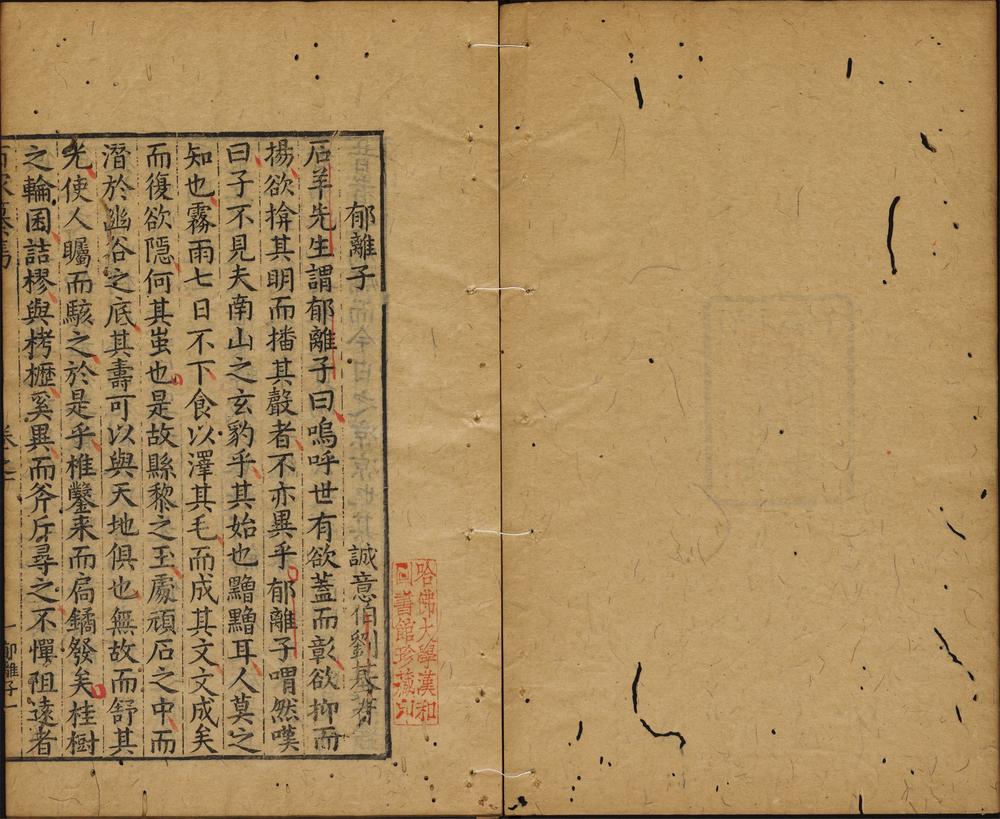 郁離子
誠意伯劉基著
石羊先生謂郁離子曰嗚呼世有欲蓋而彰欲抑而
揚欲揜其明而播其聲者不亦異乎郁離子喟然嘆
曰子不見夫南山之玄豹乎其始也黯黯耳人莫之
知也霧雨七日不下食以澤其毛而成其文文成矣
而復欲隱何其蚩也是故縣黎之玉處頑石之中而
潛於幽谷之底其壽可以與天地俱也無故而舒其
光使人矚而駭之於是乎椎鑿来而扃鐍發矣桂樹
之輪囷詰樛與栲櫪奚異而斧斤尋之不憚阻遠者
郁離子
哈佛大學漢和
圖書館珍藏印